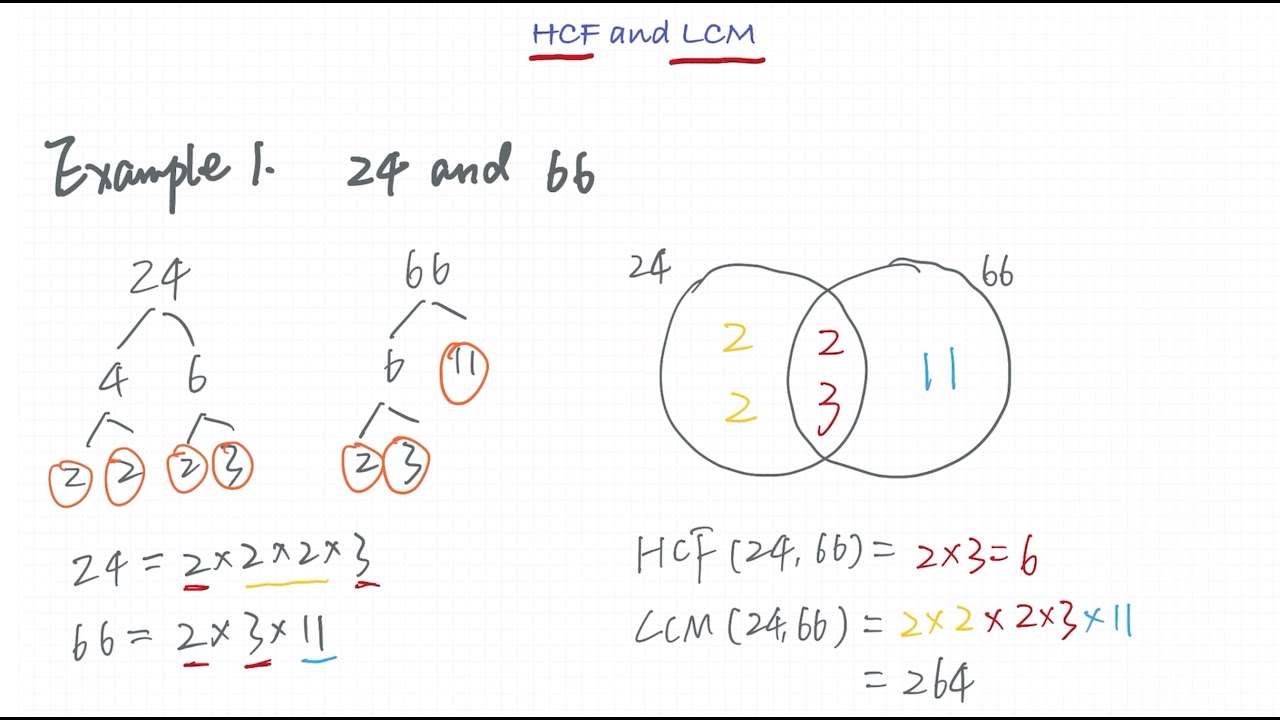 HCF and LCM
Example 1. 24 and 66
24
4 6
2 2 2 3
66
6 11
2 3
24 = 2 × 2 × 2 × 3
66 = 2 × 3 × 11
24 66
2 2 11
2 3
HCF (24, 66) = 2×3 = 6
LCM (24, 66) = 2×2×2×3×11
= 264